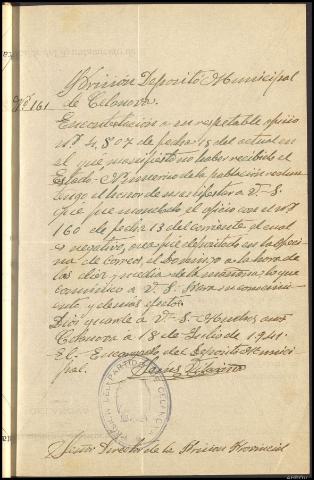 Prision Deposito Municipal
Nº 161 de Celanova.
En contestación a su respetable oficio
nº 4.807 de fecha 15 del actual en
el que manifiesta no haber recibido el
Estado-Numerico de la población reclusa
tengo el honor de manifestar a V. S.
que fue mandado el oficio con el nº
160 de fecha 13 del corriente el cual
es negativo, que depositado en la ofici
na de correos, el domingo a la hora de
las diez y media de la mañana, lo que
comunico a V. S. para su conocimi
ento y demás efectos.
Dios guarde a V. S. Muchos años
Celanova a 18 de Julio de 1941.
El Encargado del Deposito Munici
pal.
Señor Director de la Prision Provincial